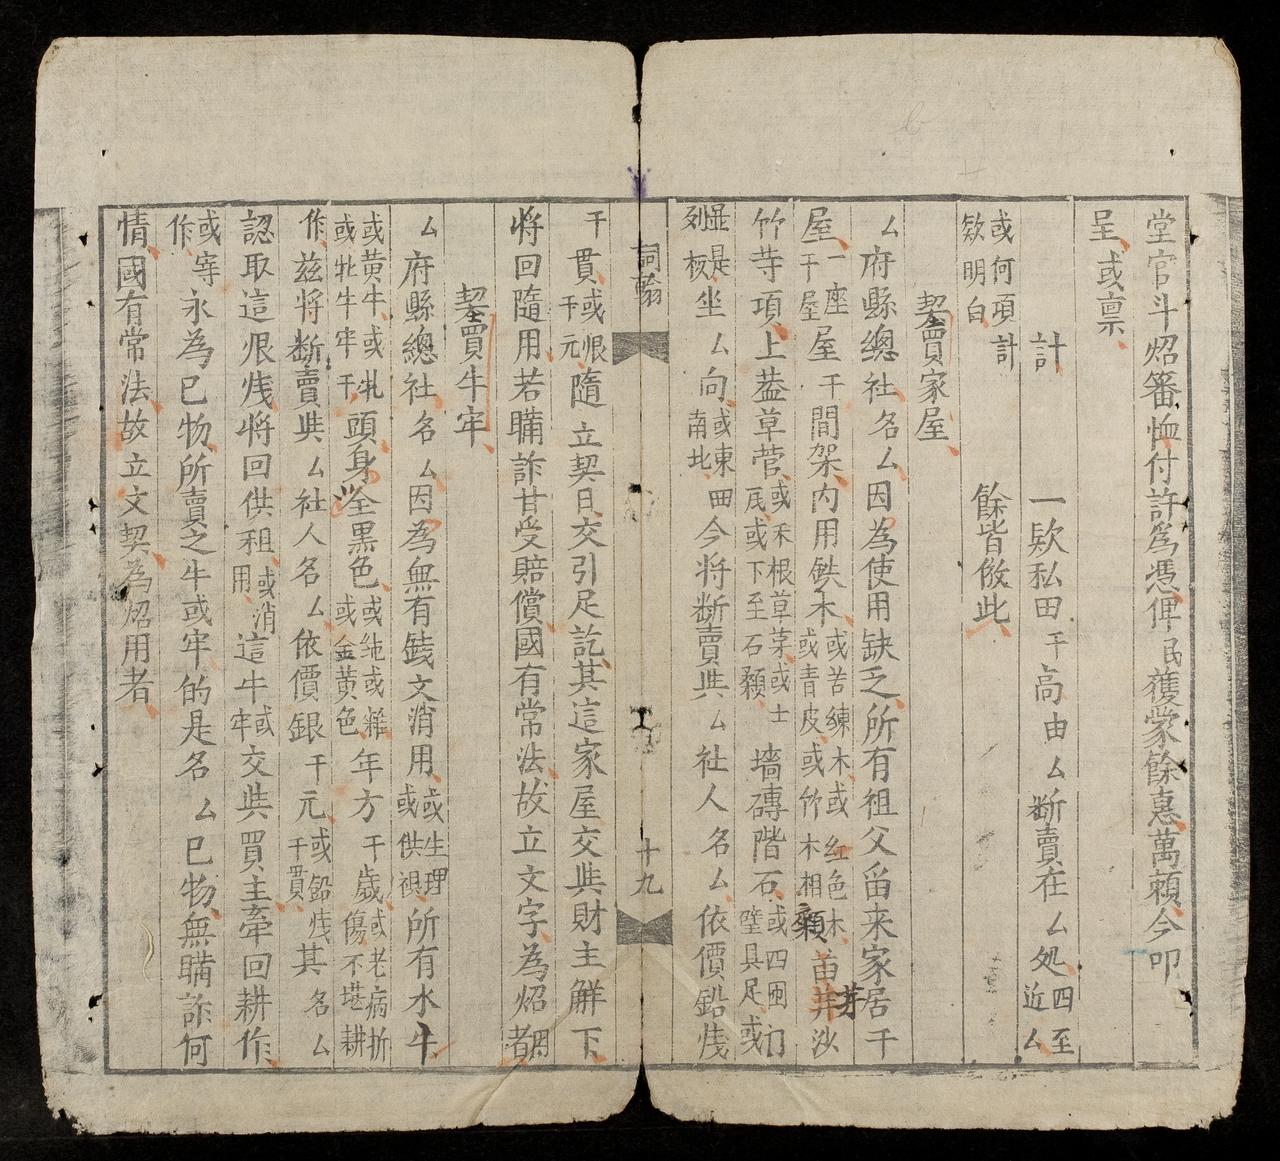 堂官斗炤審恤付許爲憑俾民獲蒙餘惠萬頼今叩
呈或禀
計 一欵私田干高由厶断賣在厶処四至近厶
或何項計欵明白 餘皆倣此
契賣家屋
厶府縣總社名厶因為使用缺乏所有祖父畱来家居干
屋一座干屋屋干間架内用鉄木或苦練木或紅色木或青皮或竹木相類苗芽沙
竹等項上葢草菅或禾根草茅或土瓦或下至石類墻磚階石或四囲门壁具足或
列板坐厶向或東西南北今将断賣與厶社人名厶依價鉛
詞翰 十九
干貫或干元隨立契日交引足訖其這家屋交與財主觧下
将回隨用若購詐甘受賠償國有常法故立文字為炤用者
契賣牛牢
厶府縣總社名厶因為無有文消用或生理或供所有水牛
或黄牛或牝或牝牛牢干頭身全黒色或純或雜或金黄色年方干歲或老病折傷不堪耕
作兹将断賣與厶社人名厶依價銀干元或鉛干貫其名厶
認取這将回供租或消用這牛或牢交與買主牽回耕作
或宰作永為已物所賣之牛或牢的是名厶已物無購詐何
情國有常法故立文契為炤用者